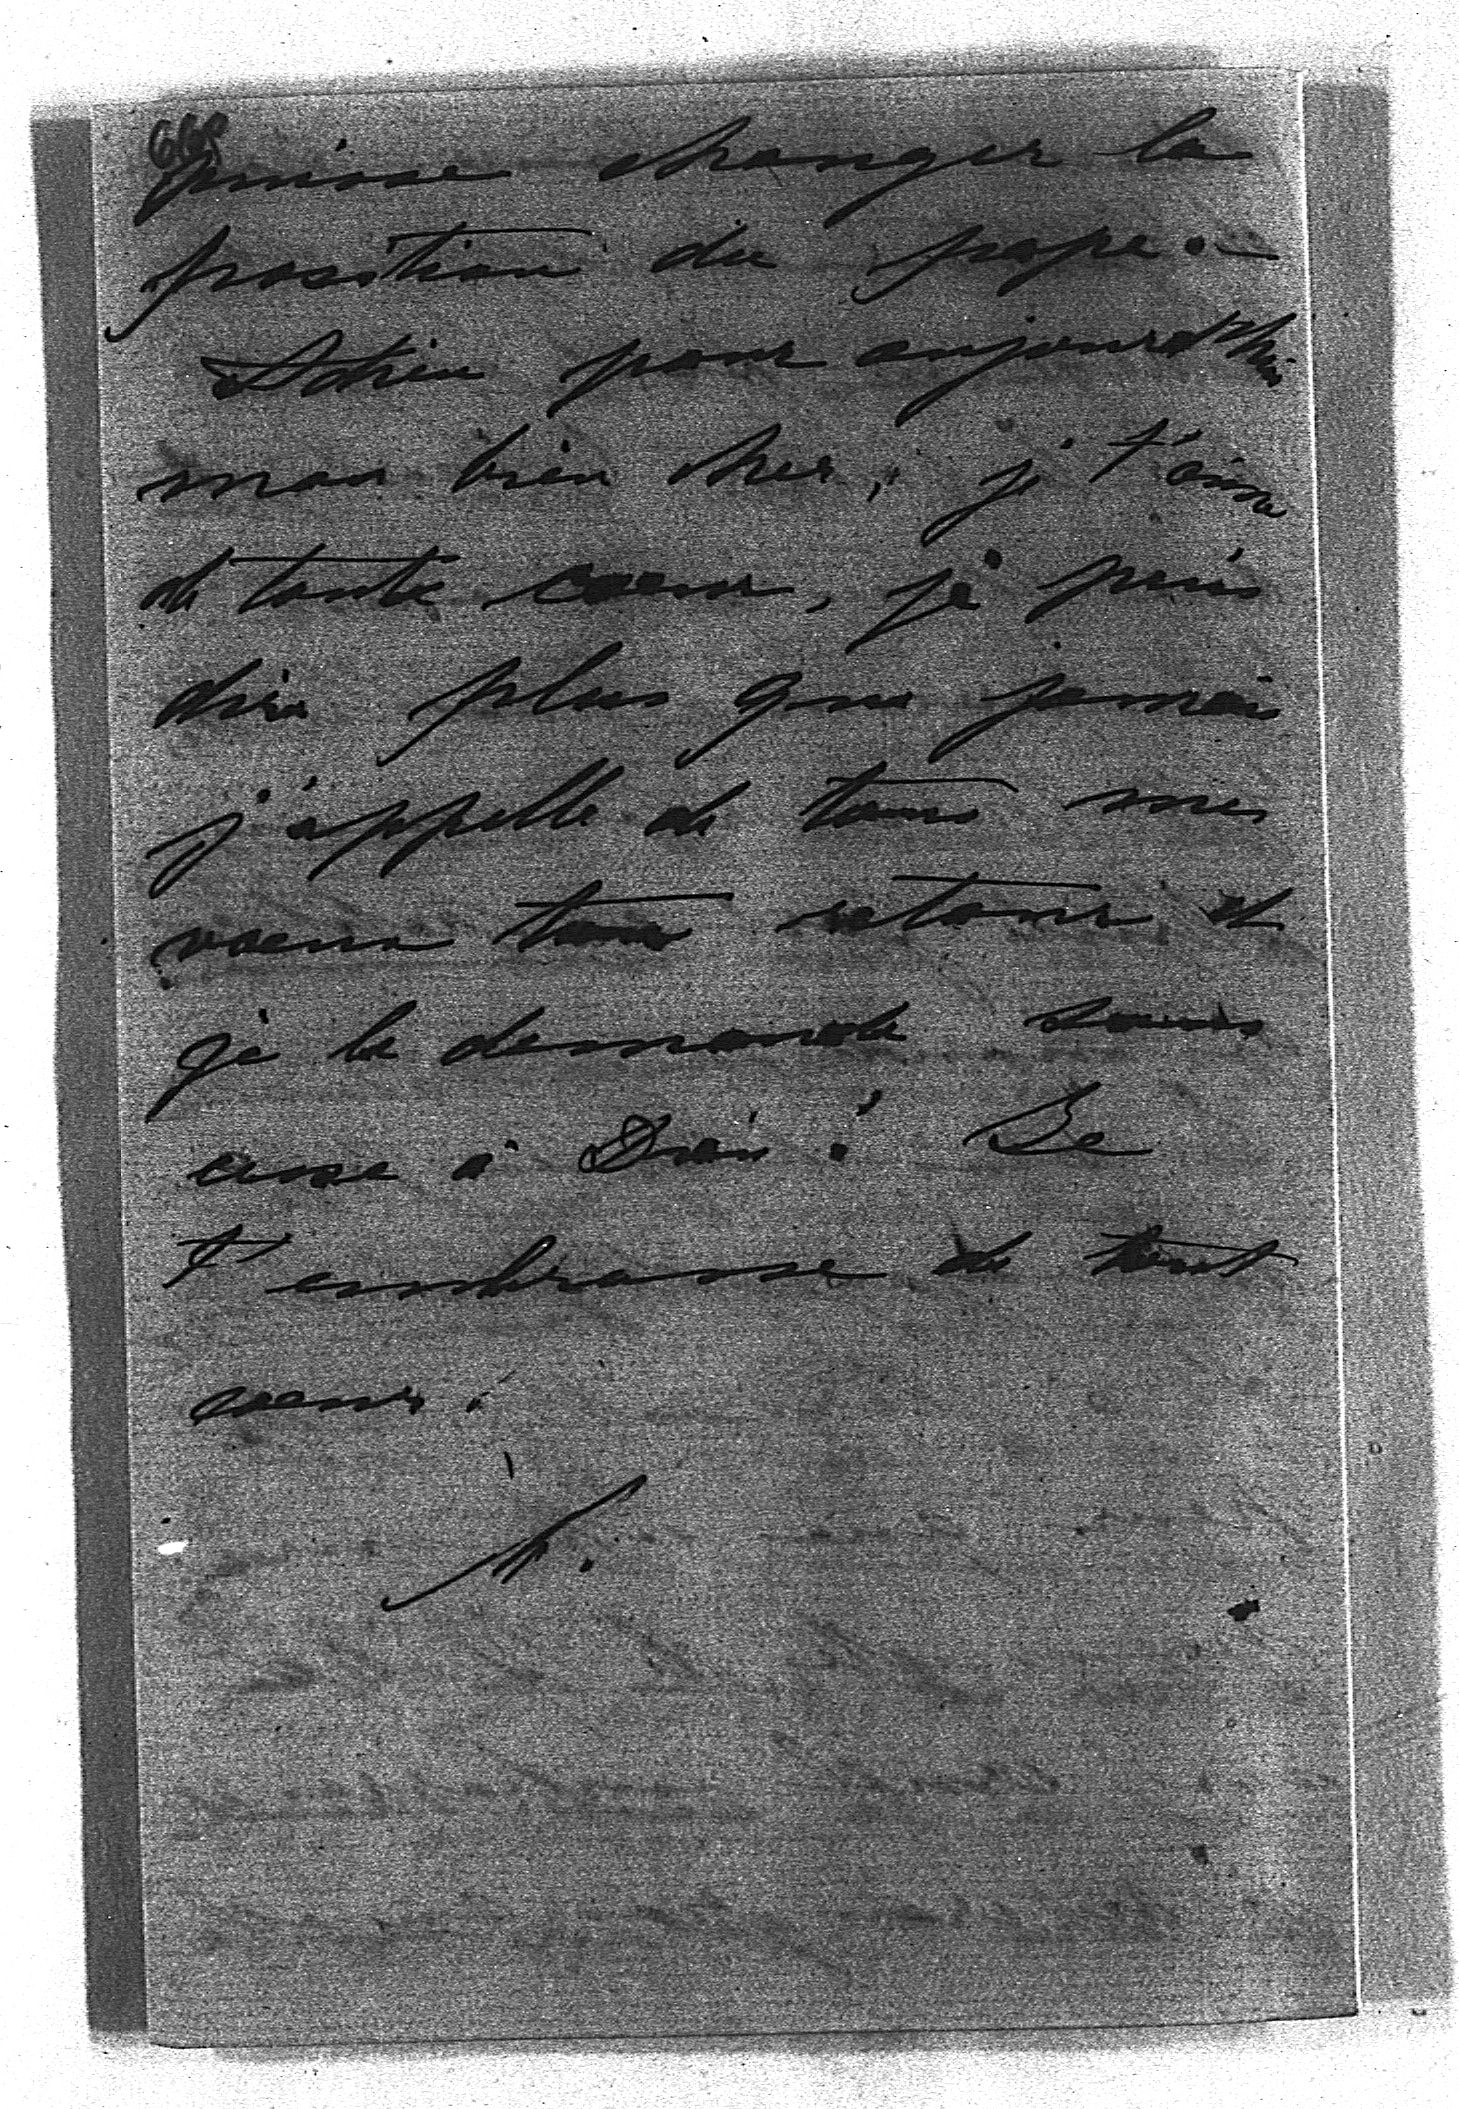 puisse changer la
position du pape. —
Adieu pour aujourd'hui
mon bien cher, je t'aime
de toute coeur, je puis
dire plus que jamais
j'appelle de tous mes
voeux ton retour et
je le demande sans
cesse à Dieu! Je
t'embrasse de tout
coeur.